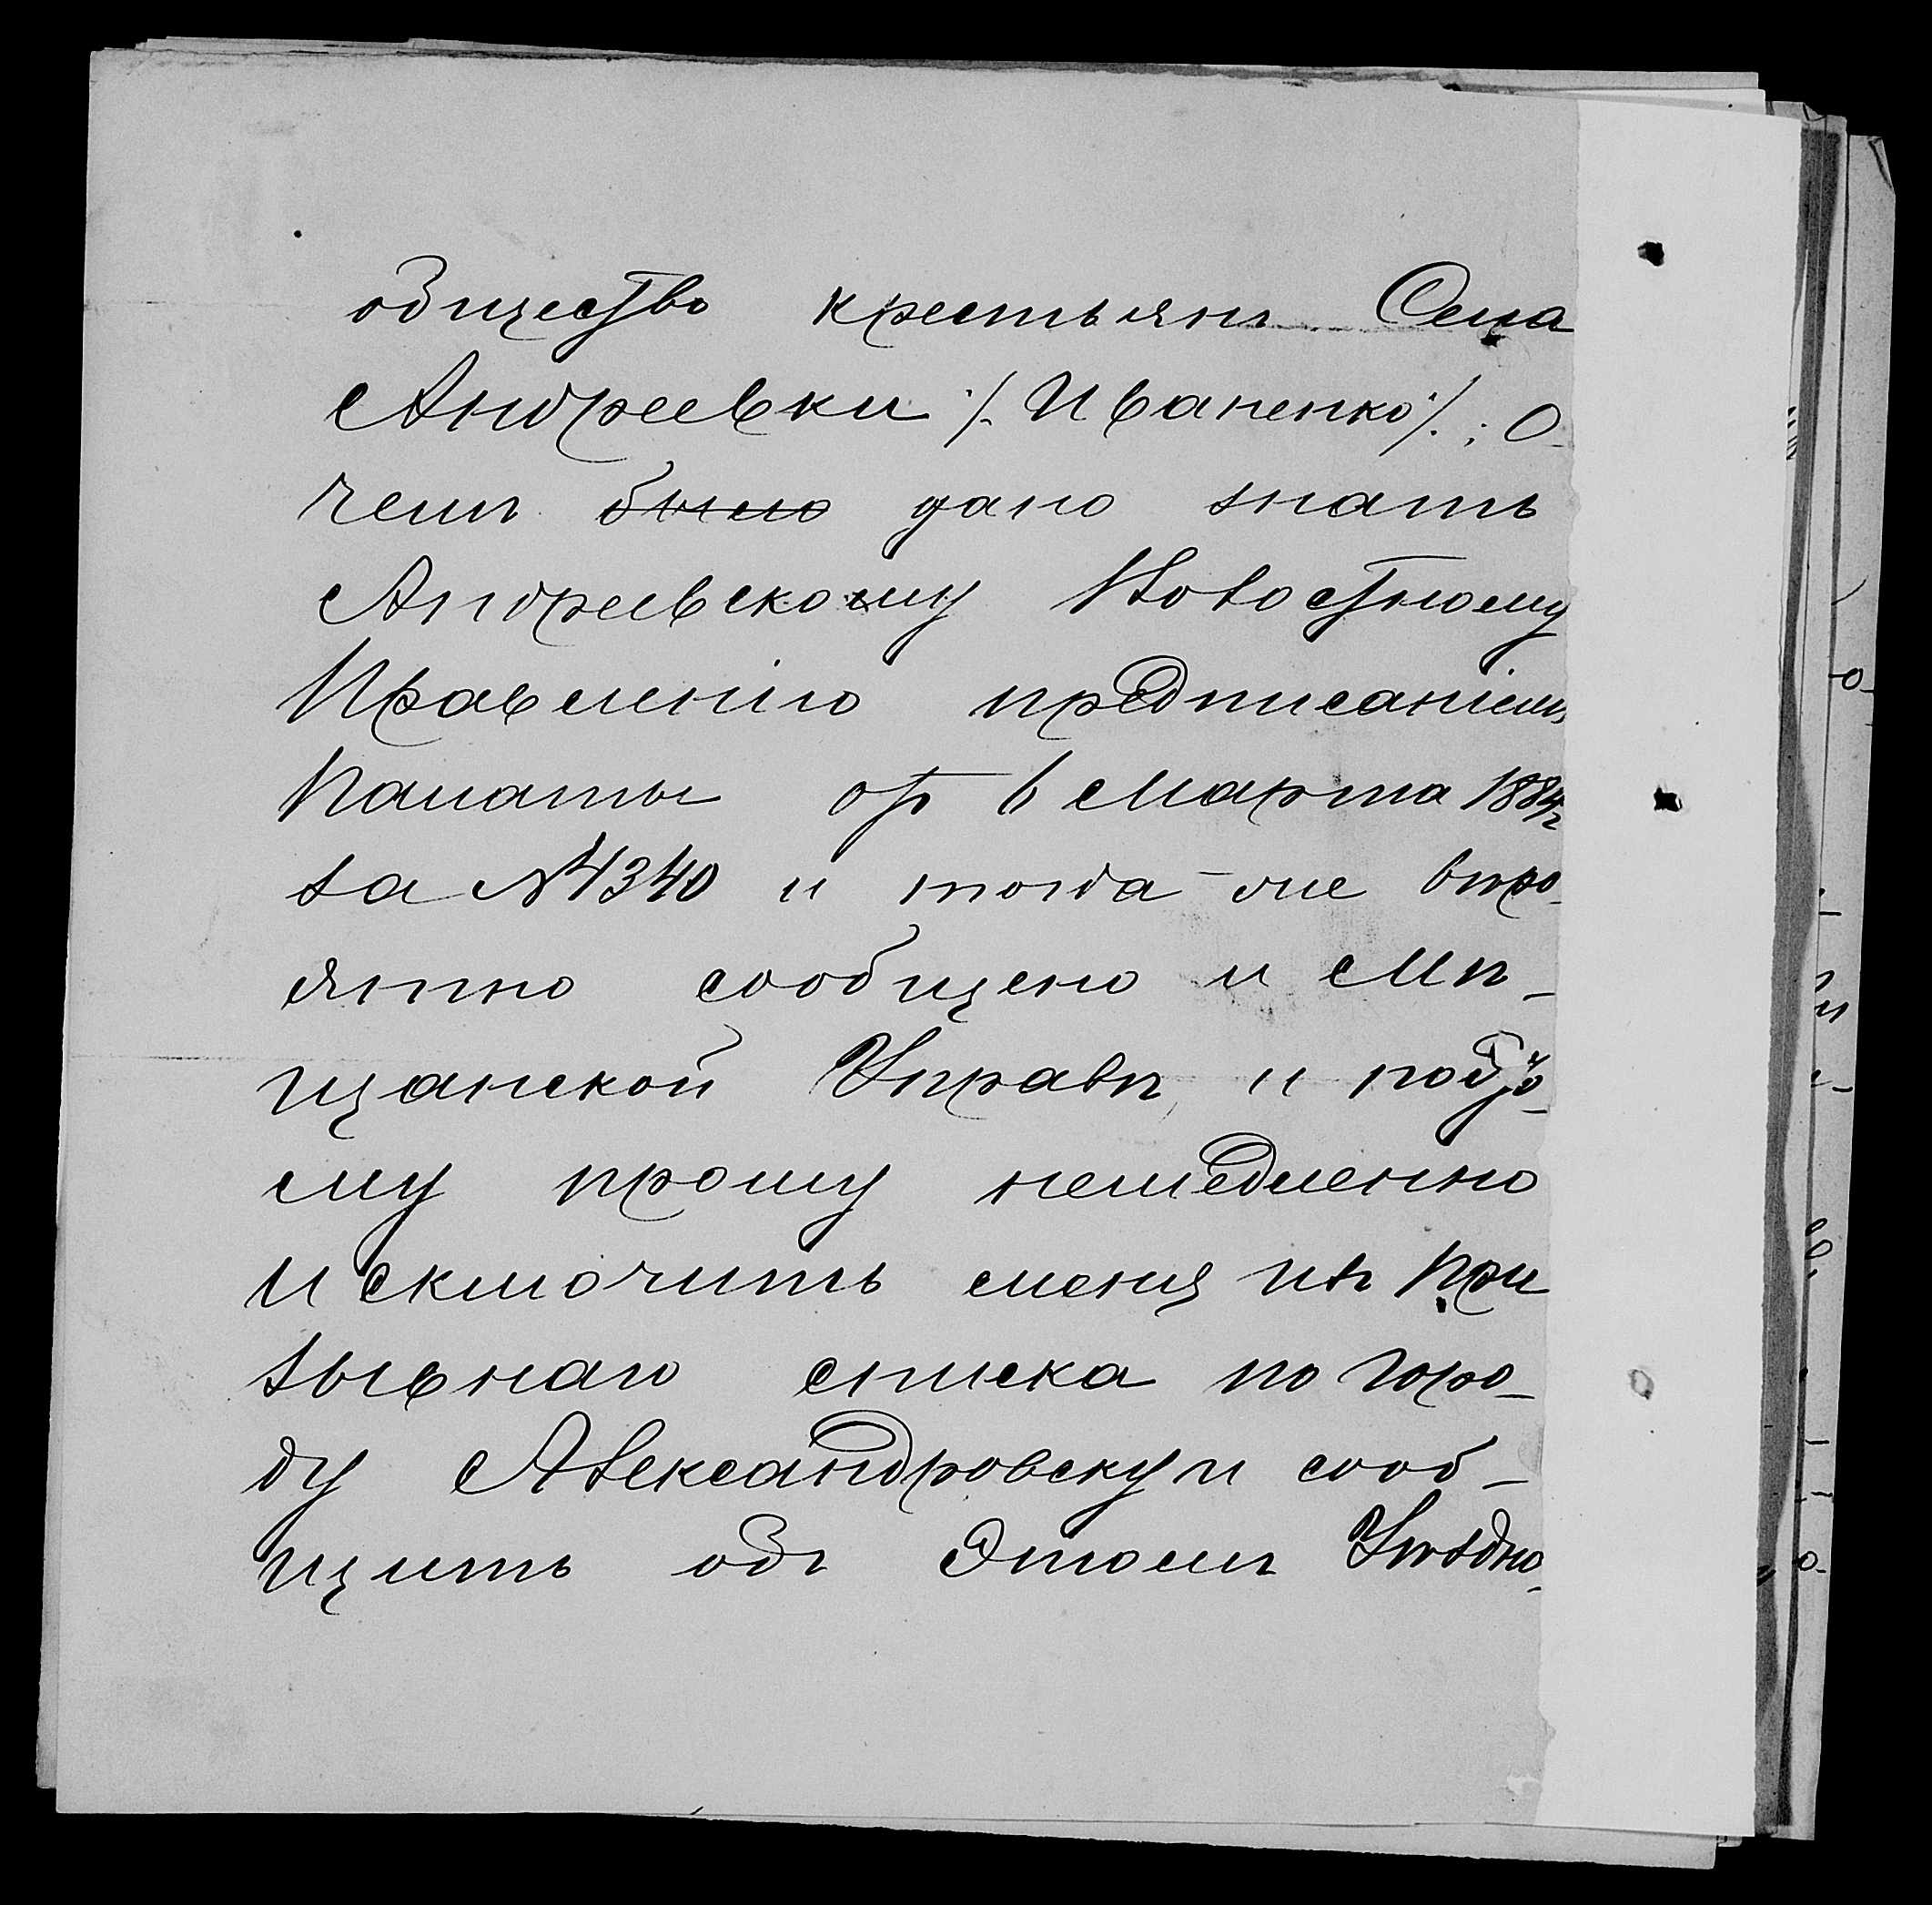 общество крестьянъ Села
Андреевки /. Иваненко ./.; О
чемъ было дано знать
Андреевскому Волостному
Правленію предписаніемъ
Палаты отъ 6 Марта 1884 г
за № 4340 и тогда-же вѣро-
ятно сообщено и Мѣ-
щанской Управѣ и поэто-
му прошу немедленно
Исключить меня изъ При
зывнаго списка по Горо-
ду Александровску и сооб-
щить объ Этомъ Уѣздно-